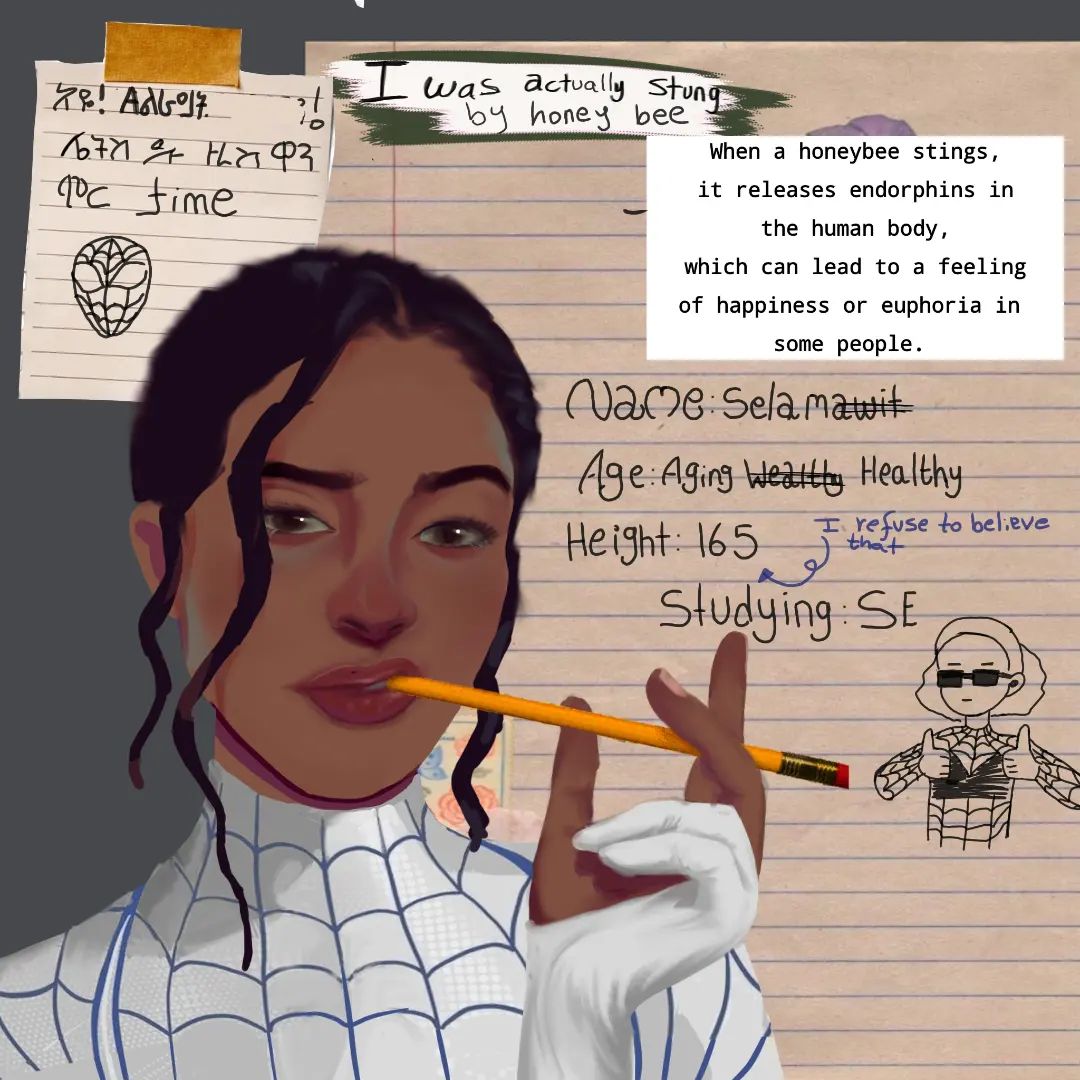 time
I was actually stung
by honey bee
When a honeybee stings,
it releases endorphins in
the human body,
which can lead to a feeling
of happiness or euphoria in
some people.
Name: Selamawit
Age: Aging Wealthy Healthy
Height: 165
I refuse to believe
that
Studying: SE